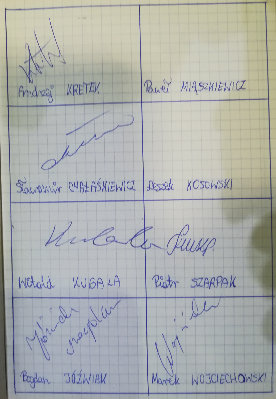 Andrzej KRETEK Paweł MIĄSKIEWICZ
Sławomir CHAŁAŚKIEWICZ Leszek KOSOWSKI
Witold KUBALA Piotr SZARPAK
Bogdan JÓŹWIAK Marek WOJCIECHOWSKI